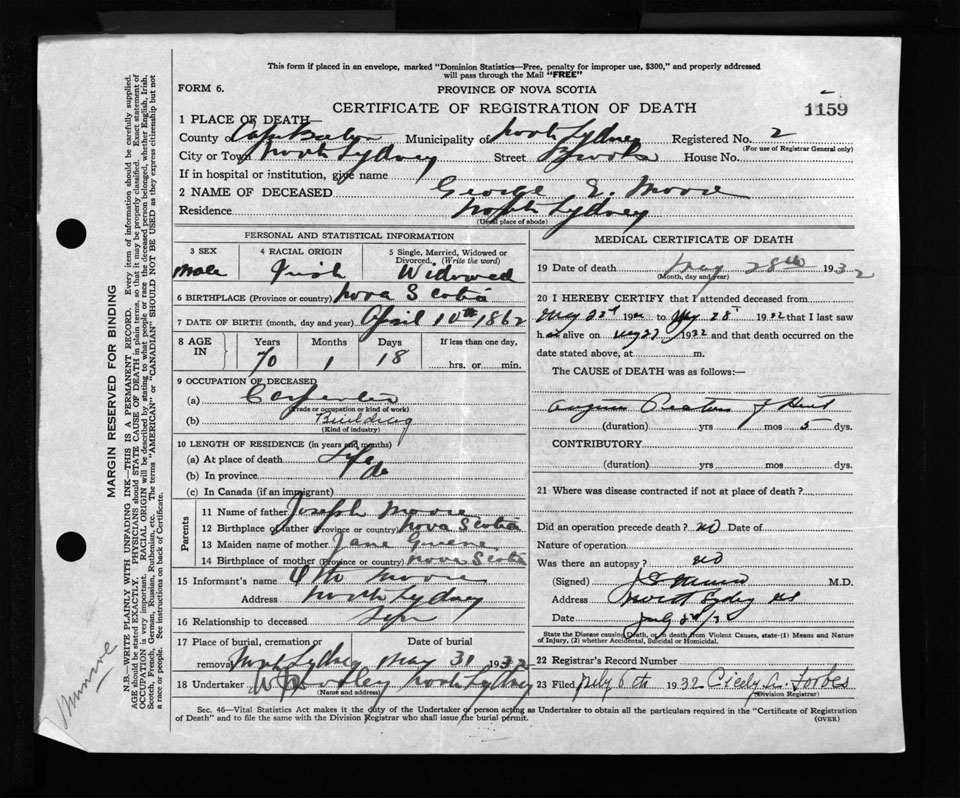 This form if placed in an envelope, marked "Dominion Statistics—Free, penalty for improper use, $300," and properly addressed
will pass through the Mail "FREE"
FORM 6.
PROVINCE OF NOVA SCOTIA
CERTIFICATE OF REGISTRATION OF DEATH
1159
1 PLACE OF DEATH
County Cape Breton Municipality of North Sydney Registered No. 2
(For use of Registrar General only)
City or Town North Sydney Street Brook House No.
If in hospital or institution, give name
2 NAME OF DECEASED George E. Moore
Residence North Sydney
(Usual place of abode)
PERSONAL AND STATISTICAL INFORMATION
3 SEX Male
4 RACIAL ORIGIN Irish
5 Single, Married, Widowed or Divorced. (Write the word) Widowed
6 BIRTHPLACE (Province or country) Nova Scotia
7 DATE OF BIRTH (month, day and year) April 10th 1862
8 AGE IN Years 70 Months 1 Days 18 If less than one day, hrs. or min.
9 OCCUPATION OF DECEASED
(a) Carpenter
(Trade or occupation or kind of work)
(b) Building
(Kind of industry)
10 LENGTH OF RESIDENCE (in years and months)
(a) At place of death Life
(b) In province do
(c) In Canada (if an immigrant)
Parents
11 Name of father Joseph Moore
12 Birthplace of father (Province or country) Nova Scotia
13 Maiden name of mother Jane
14 Birthplace of mother (Province or country) Nova Scotia
15 Informant's name Otto Moore
Address North Sydney
16 Relationship to deceased Son
17 Place of burial, cremation or removal North Sydney Date of burial May 31 1932
18 Undertaker North Sydney
(Name and address)
MEDICAL CERTIFICATE OF DEATH
19 Date of death May 28th 1932
(Month, day and year)
20 I HEREBY CERTIFY that I attended deceased from
May 23rd 19 to May 28th 1932 that I last saw
h alive on May 27 1932 and that death occurred on the
date stated above, at m.
The CAUSE of DEATH was as follows:—
Angina Pectoris
(duration) yrs mos 5 dys.
CONTRIBUTORY
(duration) yrs mos dys.
21 Where was disease contracted if not at place of death?
Did an operation precede death? no Date of
Nature of operation
Was there an autopsy? no
(Signed) M.D.
Address North Sydney NS
Date July
State the Disease causing Death, or in death from Violent Causes, state-(1) Means and
Nature of Injury, (2) whether Accidental, Suicidal or Homicidal.
22 Registrar's Record Number
23 Filed July 6th 1932 Cicely A. Forbes
(Division Registrar)
Sec. 46—Vital Statistics Act makes it the duty of the Undertaker or person acting as Undertaker to obtain all the particulars required in the "Certificate of Registration
of Death" and to file the same with the Division Registrar who shall issue the burial permit.
(OVER)
MARGIN RESERVED FOR BINDING
N.B.—WRITE PLAINLY WITH UNFADING INK—THIS IS A PERMANENT RECORD. Every item of information should be carefully supplied.
AGE should be stated EXACTLY. PHYSICIANS should STATE CAUSE OF DEATH in plain terms, so that it may be properly classified. Exact statement of
OCCUPATION is very important. RACIAL ORIGIN will be described by stating to what people or race the deceased person belonged, whether English, Irish,
Scotch, French, German, Russian, Ruthenian, etc. The terms "AMERICAN" or "CANADIAN" SHOULD NOT BE USED as they express citizenship but not
a race or people. See instructions on back of Certificate.
Munroe